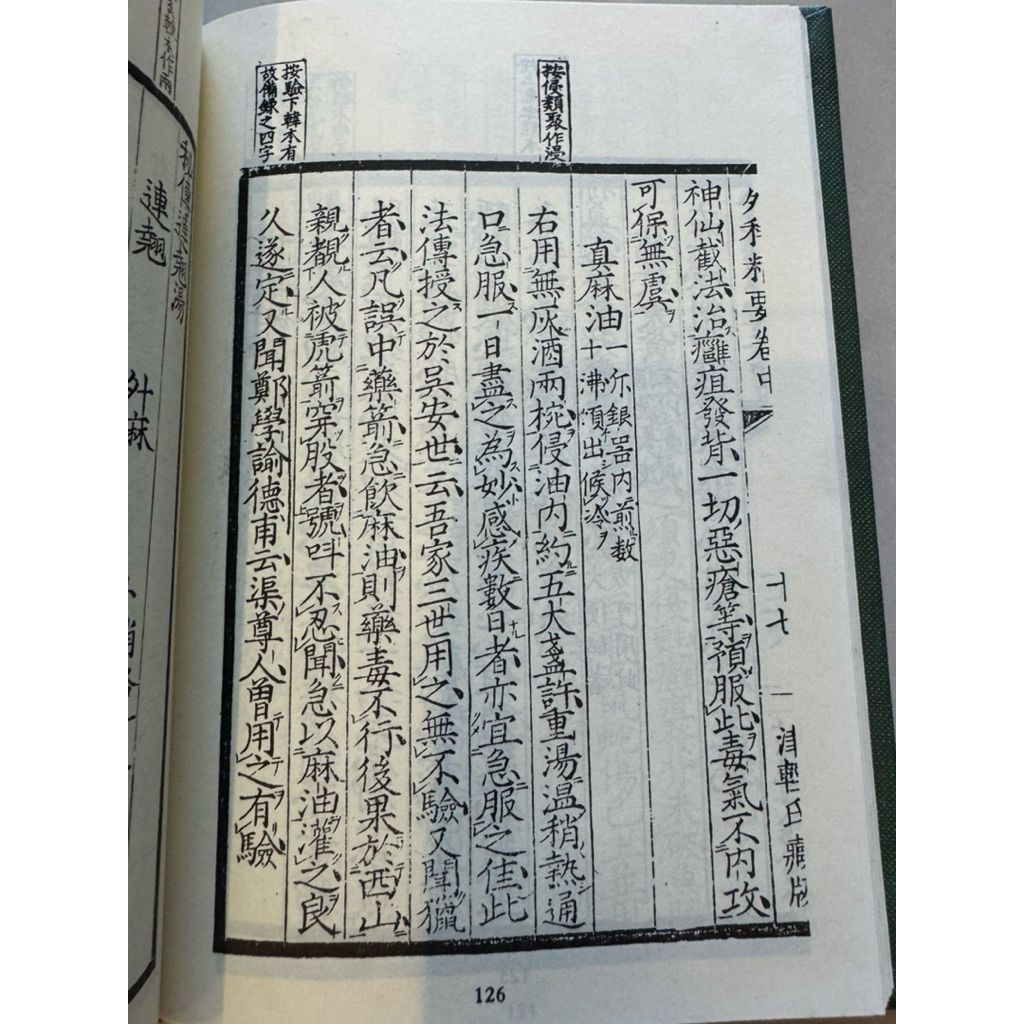 外科精要卷中
十七
津輕氏藏版
按侵類聚作浸
神仙截法治癰疽發背一切惡瘡等預服此毒氣不内攻
可保無虞
真麻油一斤銀器内煎數
十沸傾出候冷
右用無灰酒兩椀侵油内約五大盞許重湯温稍熱通
口急服一日盡之為妙感疾數日者亦宜急服之佳此
法傳授之於吳安世云吾家三世用之無不驗又聞獵
者云凡誤中藥箭急飲麻油則藥毒不行後果於西山
按驗下韓本有
故備録之四字
親覩人被虎箭穿股者號呌不忍聞急以麻油灌之良
久遂定又聞鄭學諭德甫云渠尊人曽用之有驗
126
本作兩
秘傳連翹湯
連翹
升麻